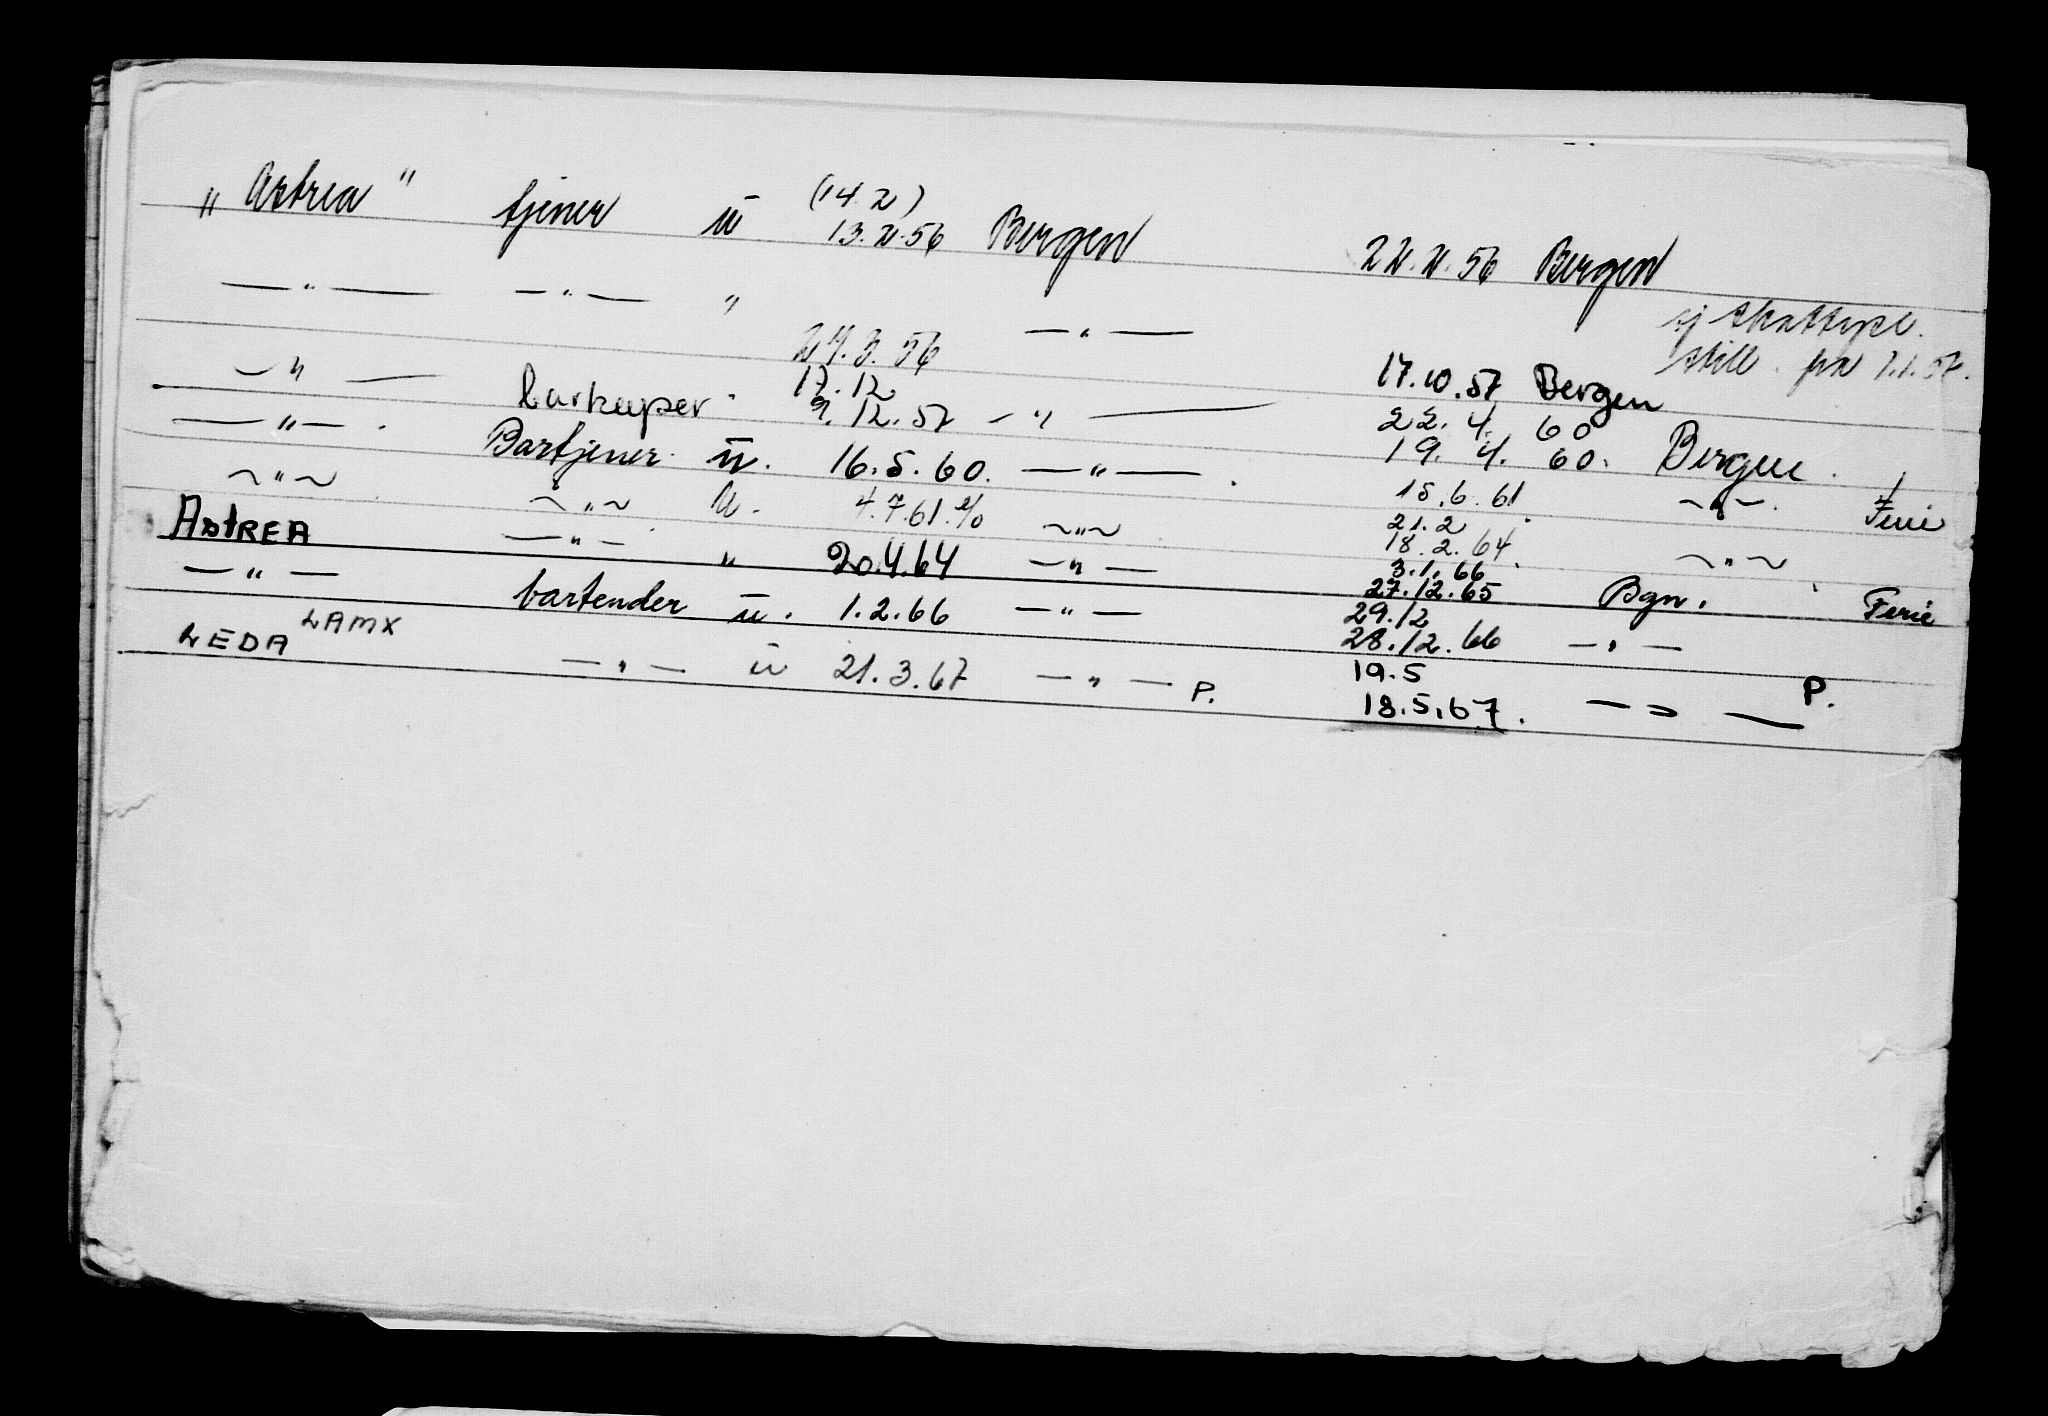 „ Astrea " tjener u (14.2) 13.2.56 Bergen 22.2.56 Bergen
— " — — " — " 24.3.56 — " — sj skattepl. still. fra 1.1.57.
— " — barkeeper. 17.12 9.12.57 — " — 17.10.57 Bergen
— " — . Bartjener u. 16.5.60. — " — . 22.4.60 19.4.60. Bergen.
~ " ~ ~ " ~ u. 4.7.61. ~ " ~ 15.6.61 ~ " ~. Ferie
ASTREA — " — " 20.4.64 — " — 21.2 18.2.64. ~ " ~
— " — bartender u. 1.2.66 — " — 3.1.66 27.12.65 Bgn. Ferie
LEDA LAMX — " — u 21.3.67 — " — P. 29.12 28.12.66 — " —
19.5 18.5.67. — " — P.